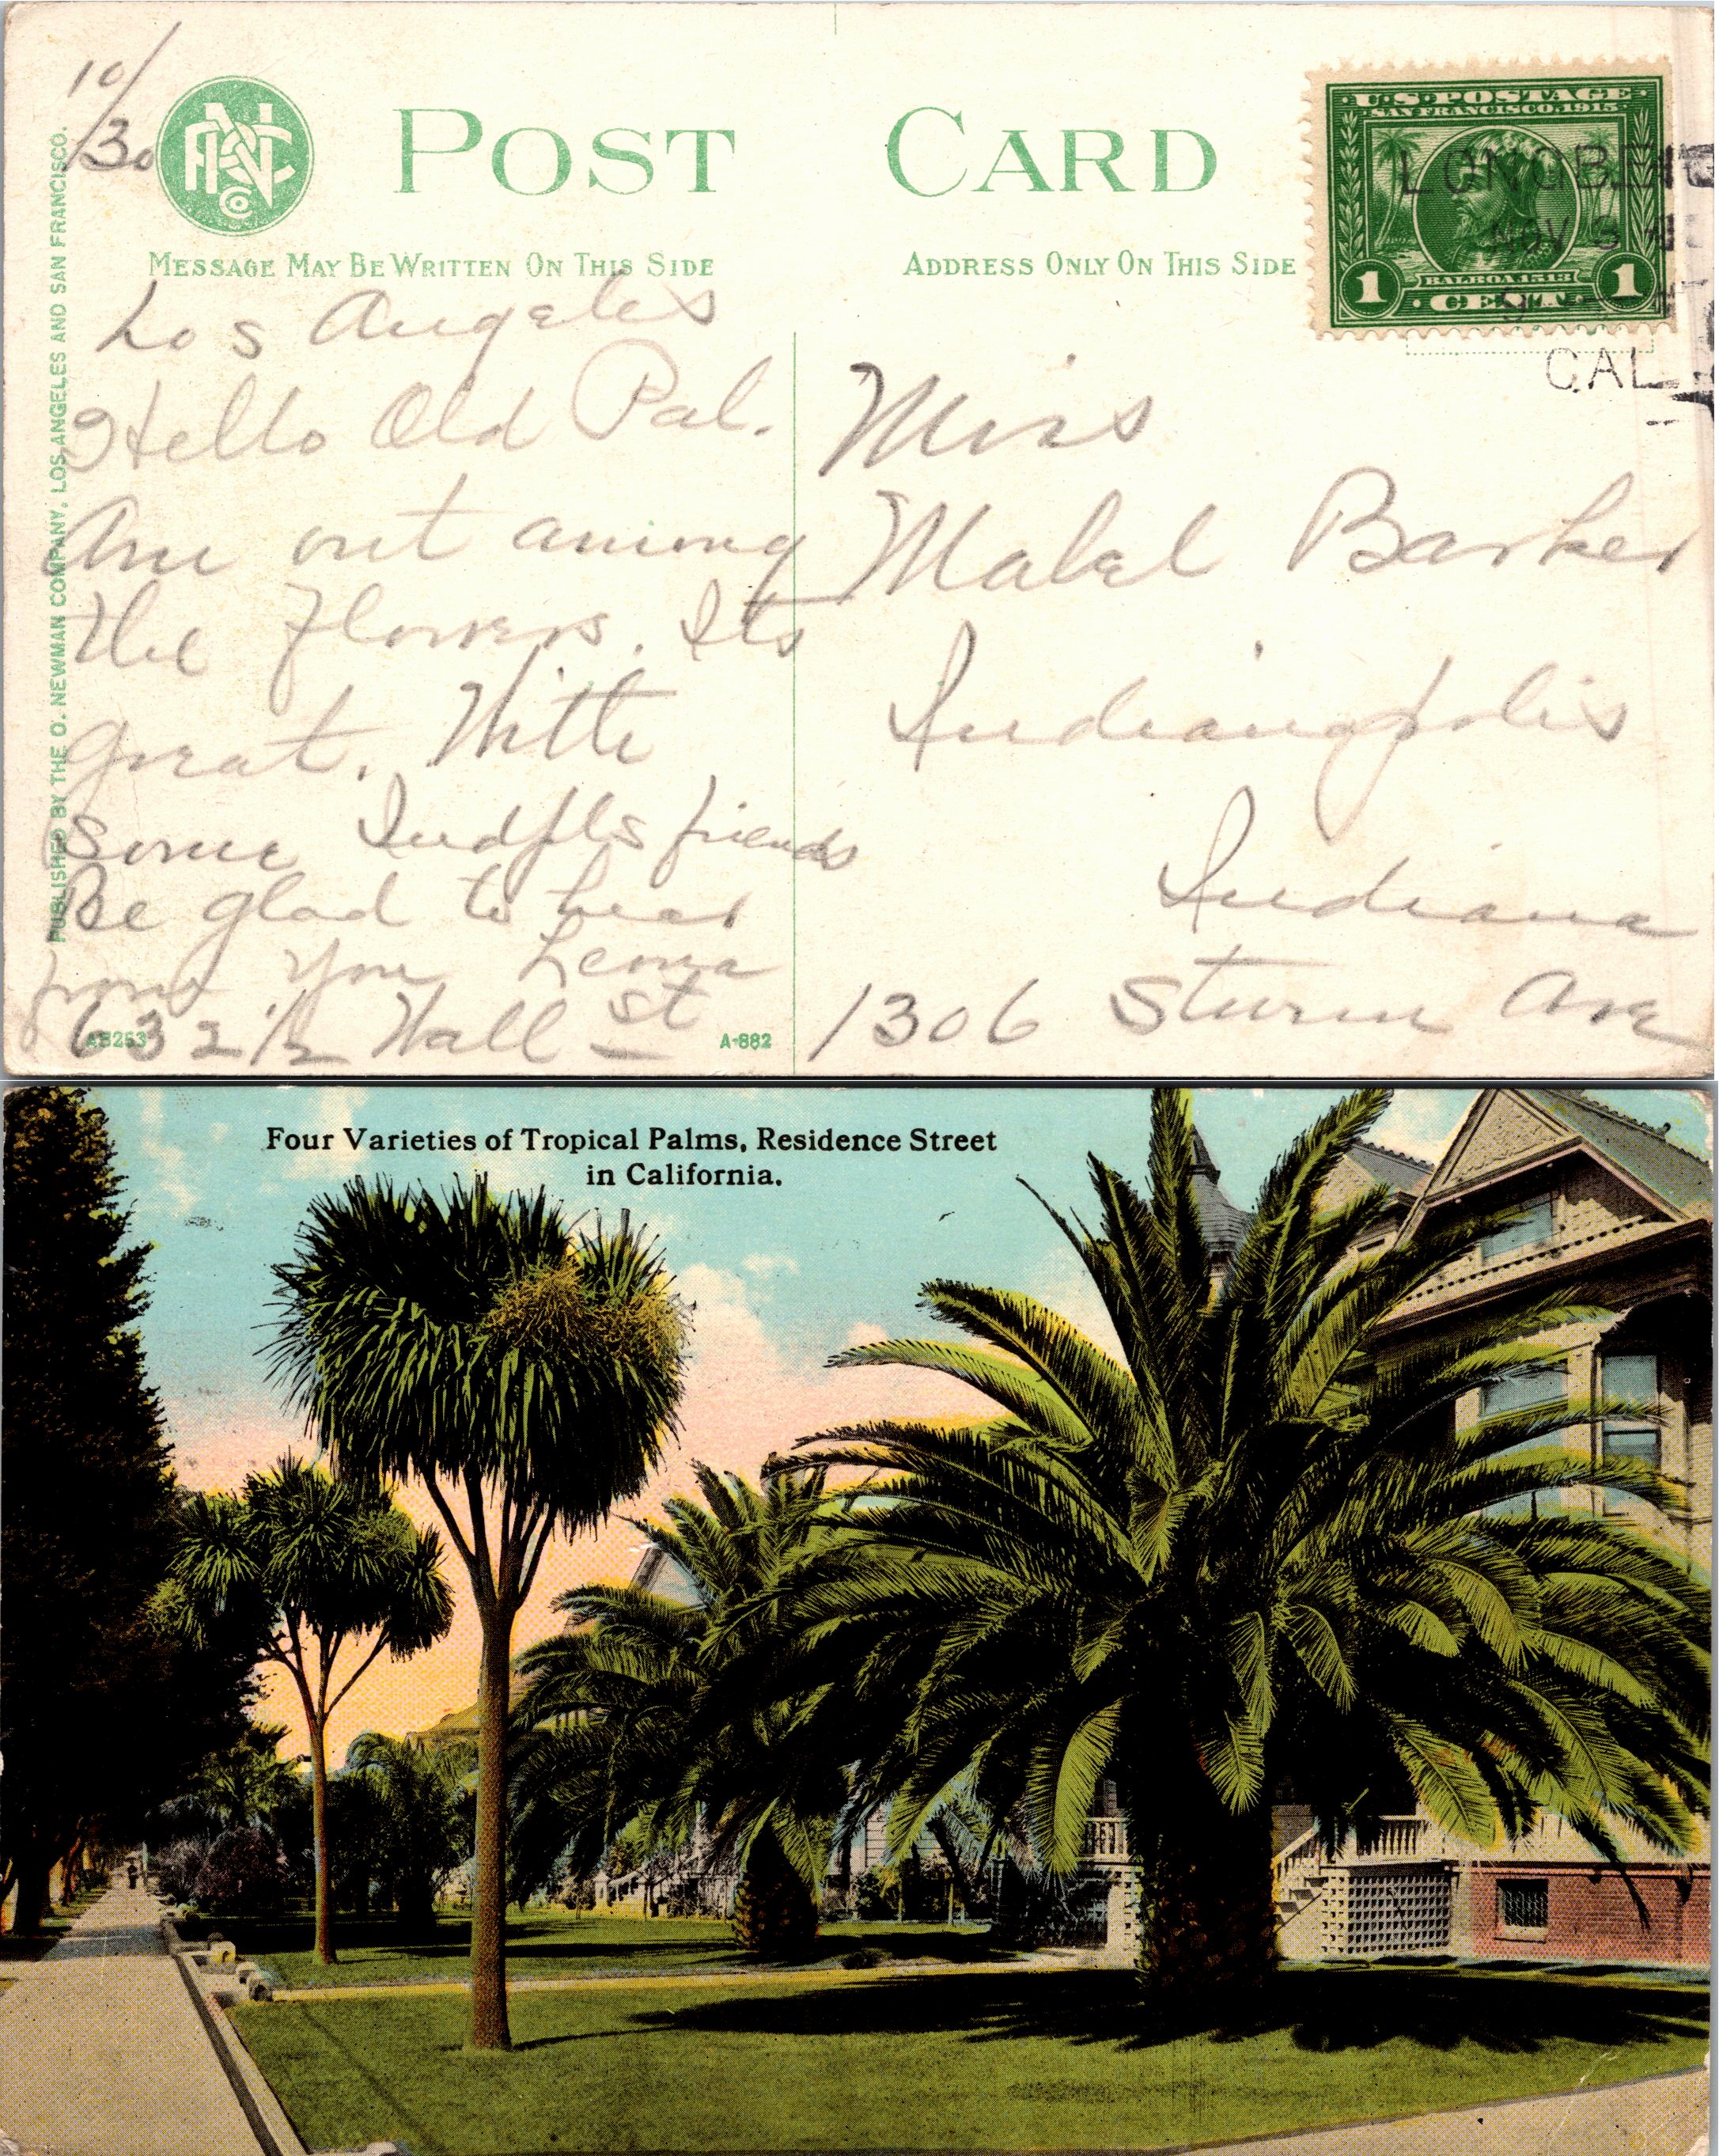 10/30
POST CARD
MESSAGE MAY BE WRITTEN ON THIS SIDE
ADDRESS ONLY ON THIS SIDE
U.S. POSTAGE
SAN FRANCISCO, 1915
BALBOA 1513
1 CENT 1
LONG BEACH
NOV 3
9
CAL.
PUBLISHED BY THE O. NEWMAN COMPANY, LOS ANGELES AND SAN FRANCISCO.
Los Angeles
Hello Old Pal.
Am out among
the flowers. Its
great. With
some Indpls friends
Be glad to hear
from you Leona
632 1/2 Wall St
A-882
Miss
Mabel Barker
Indianapolis
Indiana
1306 Sturm Ave
Four Varieties of Tropical Palms, Residence Street
in California.